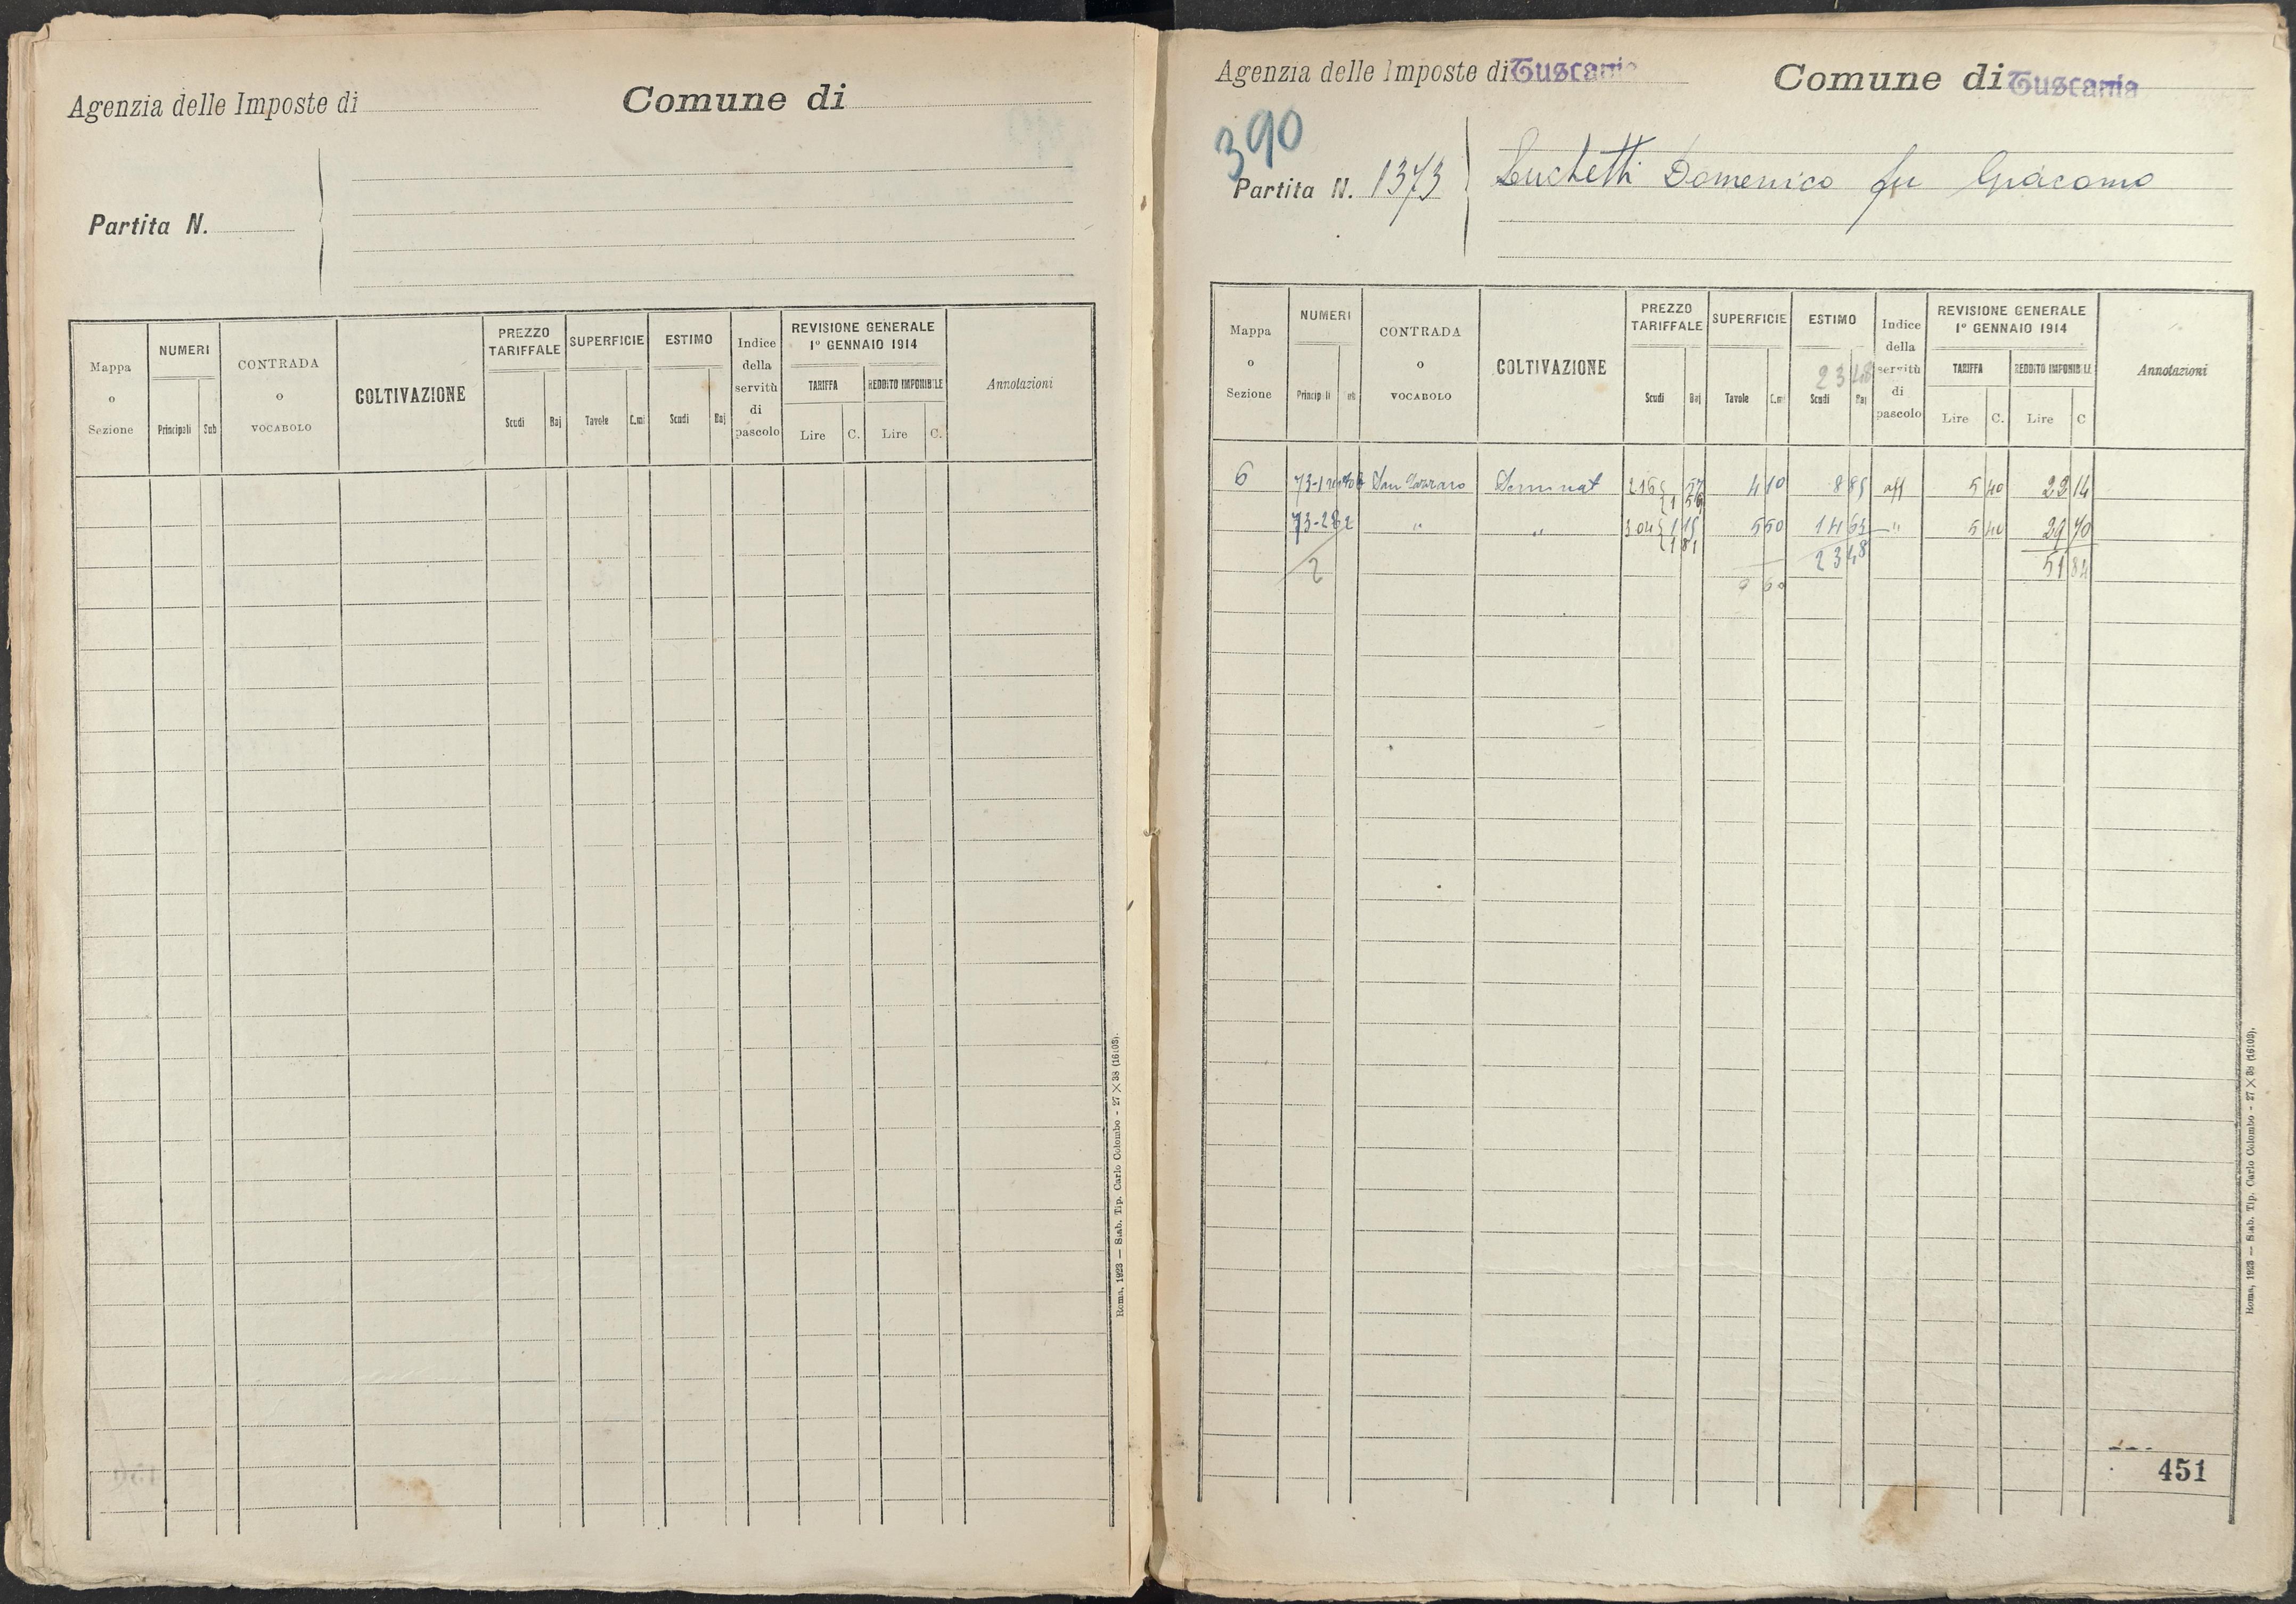 Agenzia delle Imposte di
Comune di
Partita N.
Mappa o Sezione
NUMERI
Principali
Sub
CONTRADA o VOCABOLO
COLTIVAZIONE
PREZZO TARIFFALE
Scudi
Baj
SUPERFICIE
Tavole
C.mi
ESTIMO
Scudi
Baj
Indice della servitù di pascolo
REVISIONE GENERALE
1° GENNAIO 1914
TARIFFA
Lire
C.
REDDITO IMPONIBILE
Lire
C.
Annotazioni
Roma, 1923 — Stab. Tip. Carlo Colombo - 27 × 38 (16103).
Agenzia delle Imposte di Tuscania
Comune di Tuscania
390
Partita N. 1373
Luchetti Domenico fu Giacomo
Mappa o Sezione
NUMERI
Principali
Sub
CONTRADA o VOCABOLO
COLTIVAZIONE
PREZZO TARIFFALE
Scudi
Baj
SUPERFICIE
Tavole
C.mi
ESTIMO
23 48
Scudi
Baj
Indice della servitù di pascolo
REVISIONE GENERALE
1° GENNAIO 1914
TARIFFA
Lire
C.
REDDITO IMPONIBILE
Lire
C
Annotazioni
6 San Lazzaro Seminat 2 16 57 4 10 8 85 aff 5 40 22 14
1 56
73-282 " " 3 04 1 15 5 50 14 63 " 5 40 29 70
1 81
2 9 60 23 48 51 84
451
Roma, 1923 — Stab. Tip. Carlo Colombo - 27 × 38 (16103).